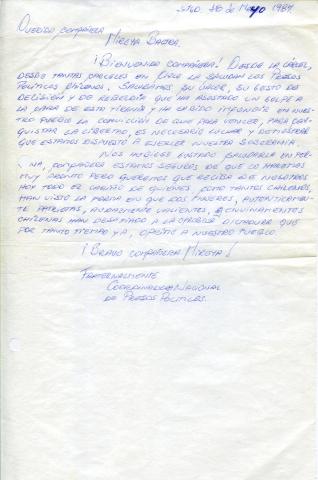 STGO. 20 de Mayo 1987
QUERIDA COMPAÑERA
MIREYA BALTRA.
¡BIENVENIDA COMPAÑERA! DESDE LA CÁRCEL,
DESDE TANTAS CÁRCELES EN CHILE LA SALUDAN LOS PRESOS
POLÍTICOS CHILENOS. SALUDAMOS SU VALOR, SU GESTO DE
DECISIÓN Y DE REBELDÍA QUE HA ASESTADO UN GOLPE A
LA CARA DE ESTA TIRANÍA Y HA SABIDO INFUNDIR EN NUES-
TRO PUEBLO LA CONVICCIÓN DE QUE PARA VENCER, PARA CON-
QUISTAR LA LIBERTAD, ES NECESARIO LUCHAR Y DEMOSTRAR
QUE ESTAMOS DISPUESTO A EJERCER NUESTRA SOBERANÍA.
NOS HUBIESE GUSTADO SALUDARLA EN PER-
SONA, COMPAÑERA ESTAMOS SEGUROS DE QUE LO HAREMOS
MUY PRONTO PERO QUEREMOS QUE RECIBA DE NOSOTROS
HOY TODO EL CARIÑO DE QUIENES, COMO TANTOS CHILENOS,
HAN VISTO LA FORMA EN QUE DOS MUJERES, AUTÉNTICAMEN-
TE PATRIOTAS, AUDAZMENTE VALIENTES, E
CHILENAS HAN DESAFIADO A LA DICTADURA QUE
POR TANTO TIEMPO YA, OPRIME A NUESTRO PUEBLO.
¡BRAVO COMPAÑERA MIREYA!
FRATERNALMENTE
COORDINADORA NACIONAL
DE PRESOS POLÍTICOS.